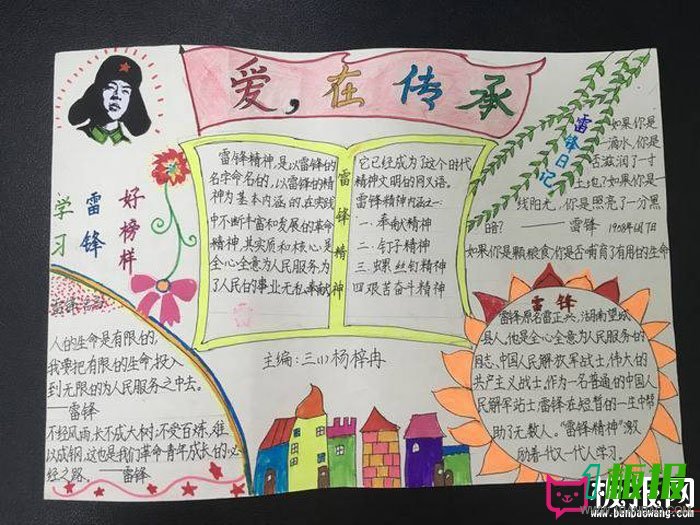 爱,在传承
学习
雷锋
好榜样
雷锋精神,是以雷锋的
名字命名的,以雷锋的精
神为基本内涵的,在实践
中不断丰富和发展的革命
精神,其实质和核心是
全心全意为人民服务,为
了人民的事业无私奉献
雷锋精神
它已经成为了这个时代
精神文明的同义语。
雷锋精神内涵之一:
一.奉献精神
二.钉子精神
三.螺丝钉精神
四艰苦奋斗精神
雷锋日记
如果你是一
滴水,你是
否滋润了一寸
土地?如果你是一
线阳光,你是照亮了一分黑
暗?——雷锋 1958年6月7日
如果你是颗粮食,你是否哺育了有用的生命
人的生命是有限的,
我要把有限的生命,投入
到无限的为人民服务之中去。
——雷锋
不经风雨,长不成大树;不受百炼,难
以成钢,这也是我们革命青年成长的必
经之路。——雷锋
主编:三(1)杨梓冉
雷锋
雷锋原名雷正兴,湖南望城
县人,他是全心全意为人民服务的
同志、中国人民解放军战士,伟大的
共产主义战士,作为一名普通的中国人
民解放军站士雷锋在短暂的一生中帮
助了无数人。“雷锋精神”激
励着一代又一代人学习。
板报
板报网
www.banbaowang.com